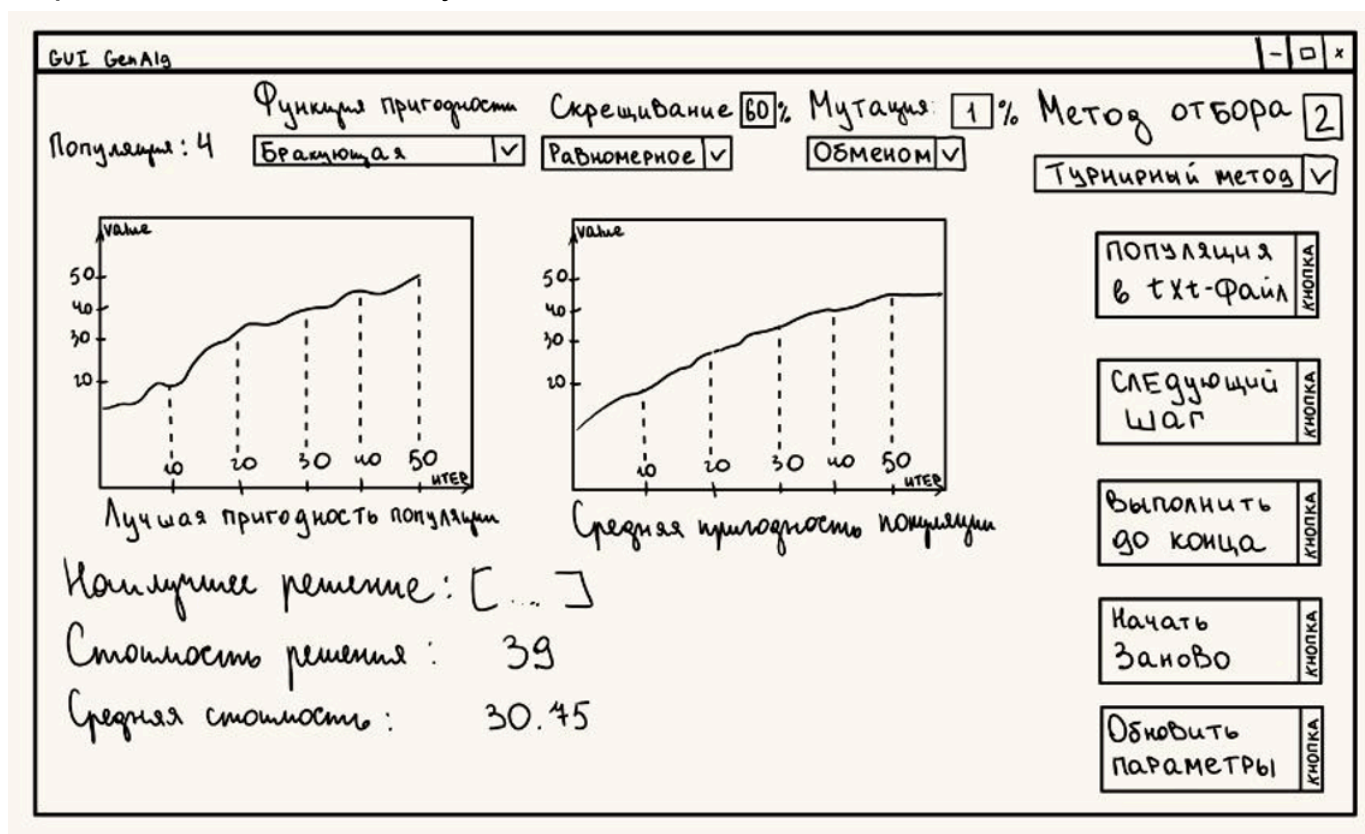 GUI GenAlg
- □ x
Популяция: 4
Функция пригодности
Бракующая
Скрещивание 60 %
Равномерное
Мутация: 1 %
Обменом
Метод отбора 2
Турнирный метод
value
50
40
30
20
10 20 30 40 50
итер
Лучшая пригодность популяции
value
50
40
30
20
10 20 30 40 50
итер
Средняя пригодность популяции
популяция
в txt-файл
КНОПКА
СЛЕдующий
шаг
КНОПКА
Выполнить
до конца
КНОПКА
Начать
Заново
КНОПКА
Обновить
параметры
КНОПКА
Наилучшее решение: [....]
Стоимость решения: 39
Средняя стоимость: 30.75